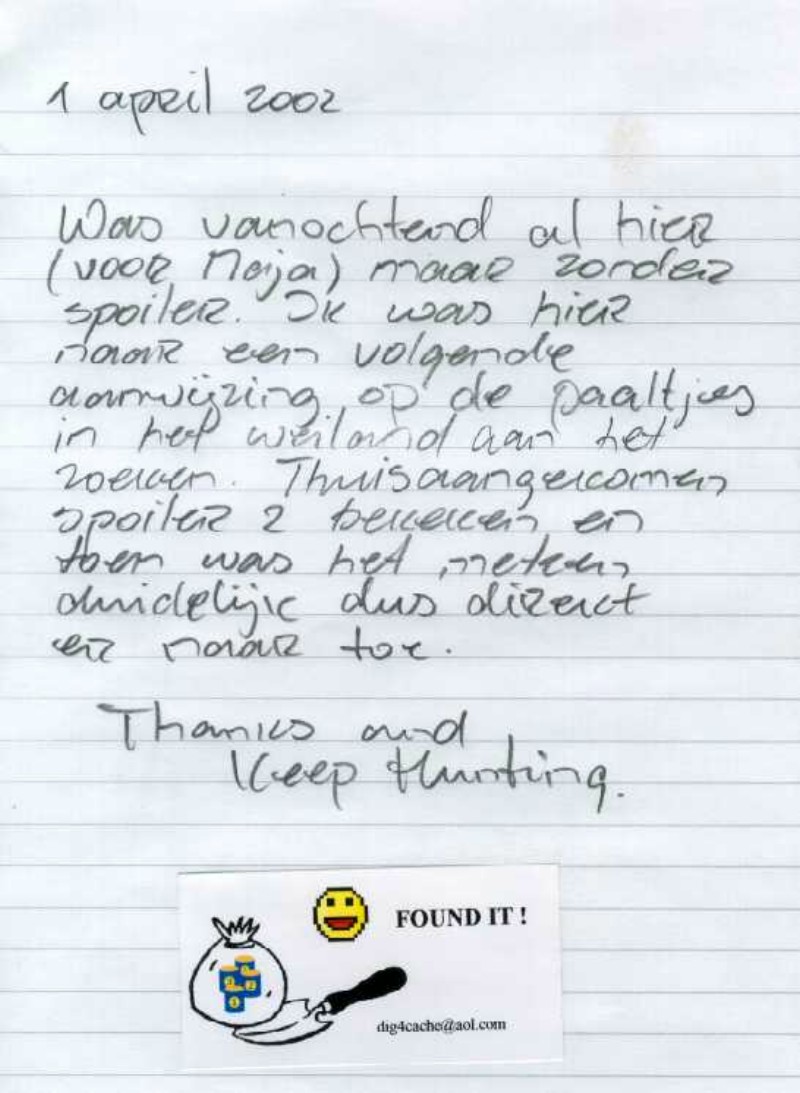 1 april 2002
Was vanochtend al hier
(voor Marja) maar zonder
spoiler. Ik was hier
naar een volgende
aanwijzing op de paaltjes
in het weiland aan het
zoeken. Thuisaangekomen
spoiler 2 bekeken en
toen was het meteen
duidelijk dus direct
er naar toe.
Thanks and
Keep Hunting.
FOUND IT !
dig4cache@aol.com